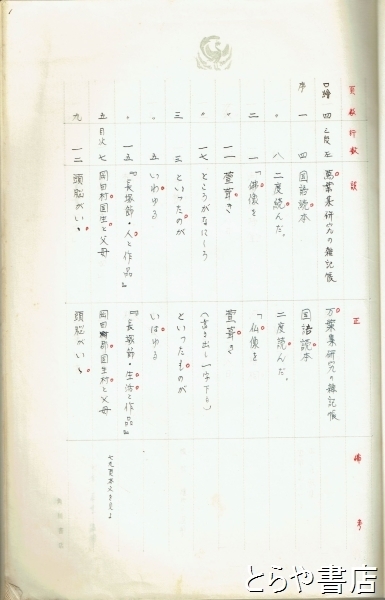 頁数行数 誤 正 備考
口繪 四 萬葉集研究の雑記帳 万葉集研究の雑記帳
序 一 四 国語読本 国語読本
〃 八 二度読んだ。 二度読んだ。
二 一 「佛像を 「仏像を
〃 一一 萱葺き 萱葺き
〃 一七 ところがなに〳〵ろ (書き出し一字下り)
三 三 といったのが といったものが
〃 五 いわゆる いはゆる
〃 一五 『長塚節・人と作品』 『長塚節・生活と作品』
五 目次 七 岡田村国生と父母 岡田郡国生村と父母 七九頁本文を見よ
九 一二 頭脳がい 頭脳がいゝ
とらや書店